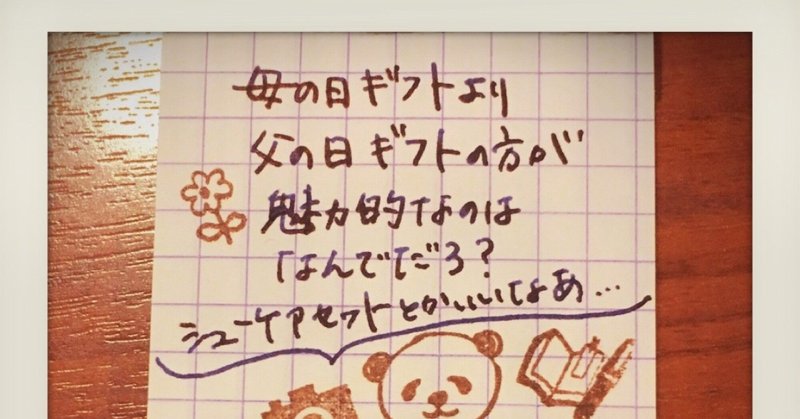 母の日ギフトより
父の日ギフトの方が
魅力的なのは
なんでだろ?
シューケアセットとかいいなぁ...